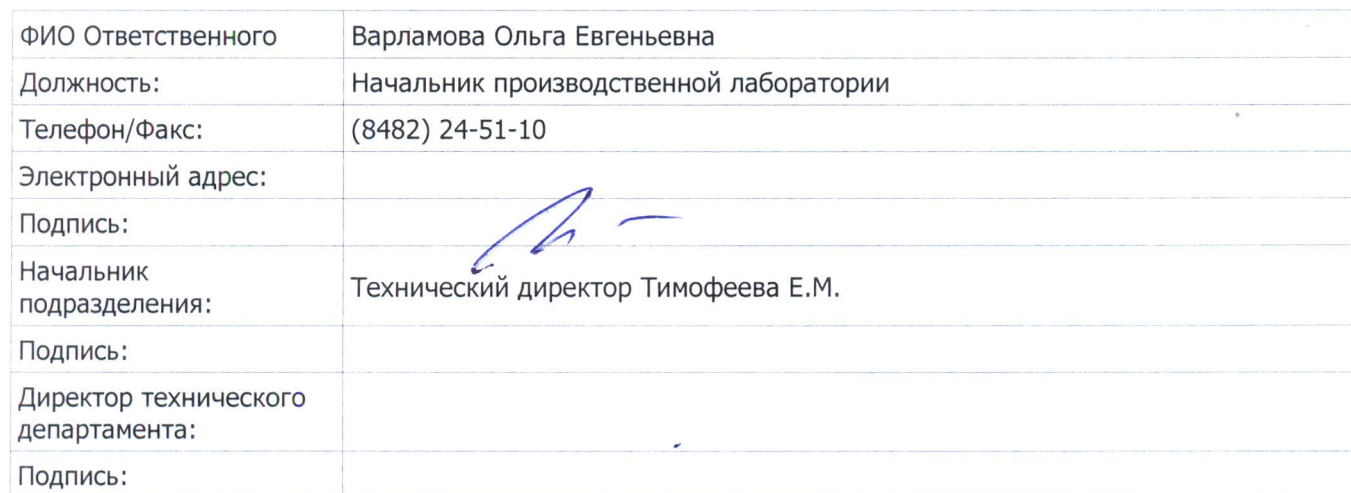 ФИО Ответственного Варламова Ольга Евгеньевна
Должность: Начальник производственной лаборатории
Телефон/Факс: (8482) 24-51-10
Электронный адрес:
Подпись:
Начальник
подразделения: Технический директор Тимофеева Е.М.
Подпись:
Директор технического
департамента:
Подпись: